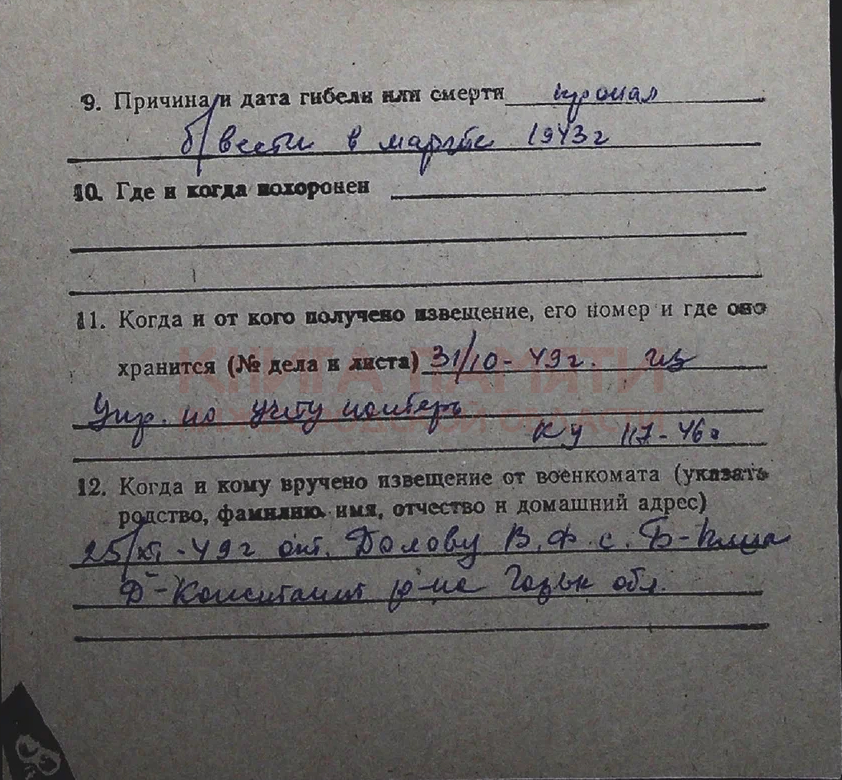 9. Причина и дата гибели или смерти пропал
б/вести в марте 1943 г
10. Где и когда похоронен
11. Когда и от кого получено извещение, его номер и где оно
хранится (№ дела и листа) 31/10-49г. из
Упр. по учету потерь
117-46г
12. Когда и кому вручено извещение от военкомата (указать
родство, фамилию, имя, отчество и домашний адрес)
25/XI-49г В.Ф. с.
р-на обл.
КНИГА ПАМЯТИ
ОБЛАСТИ